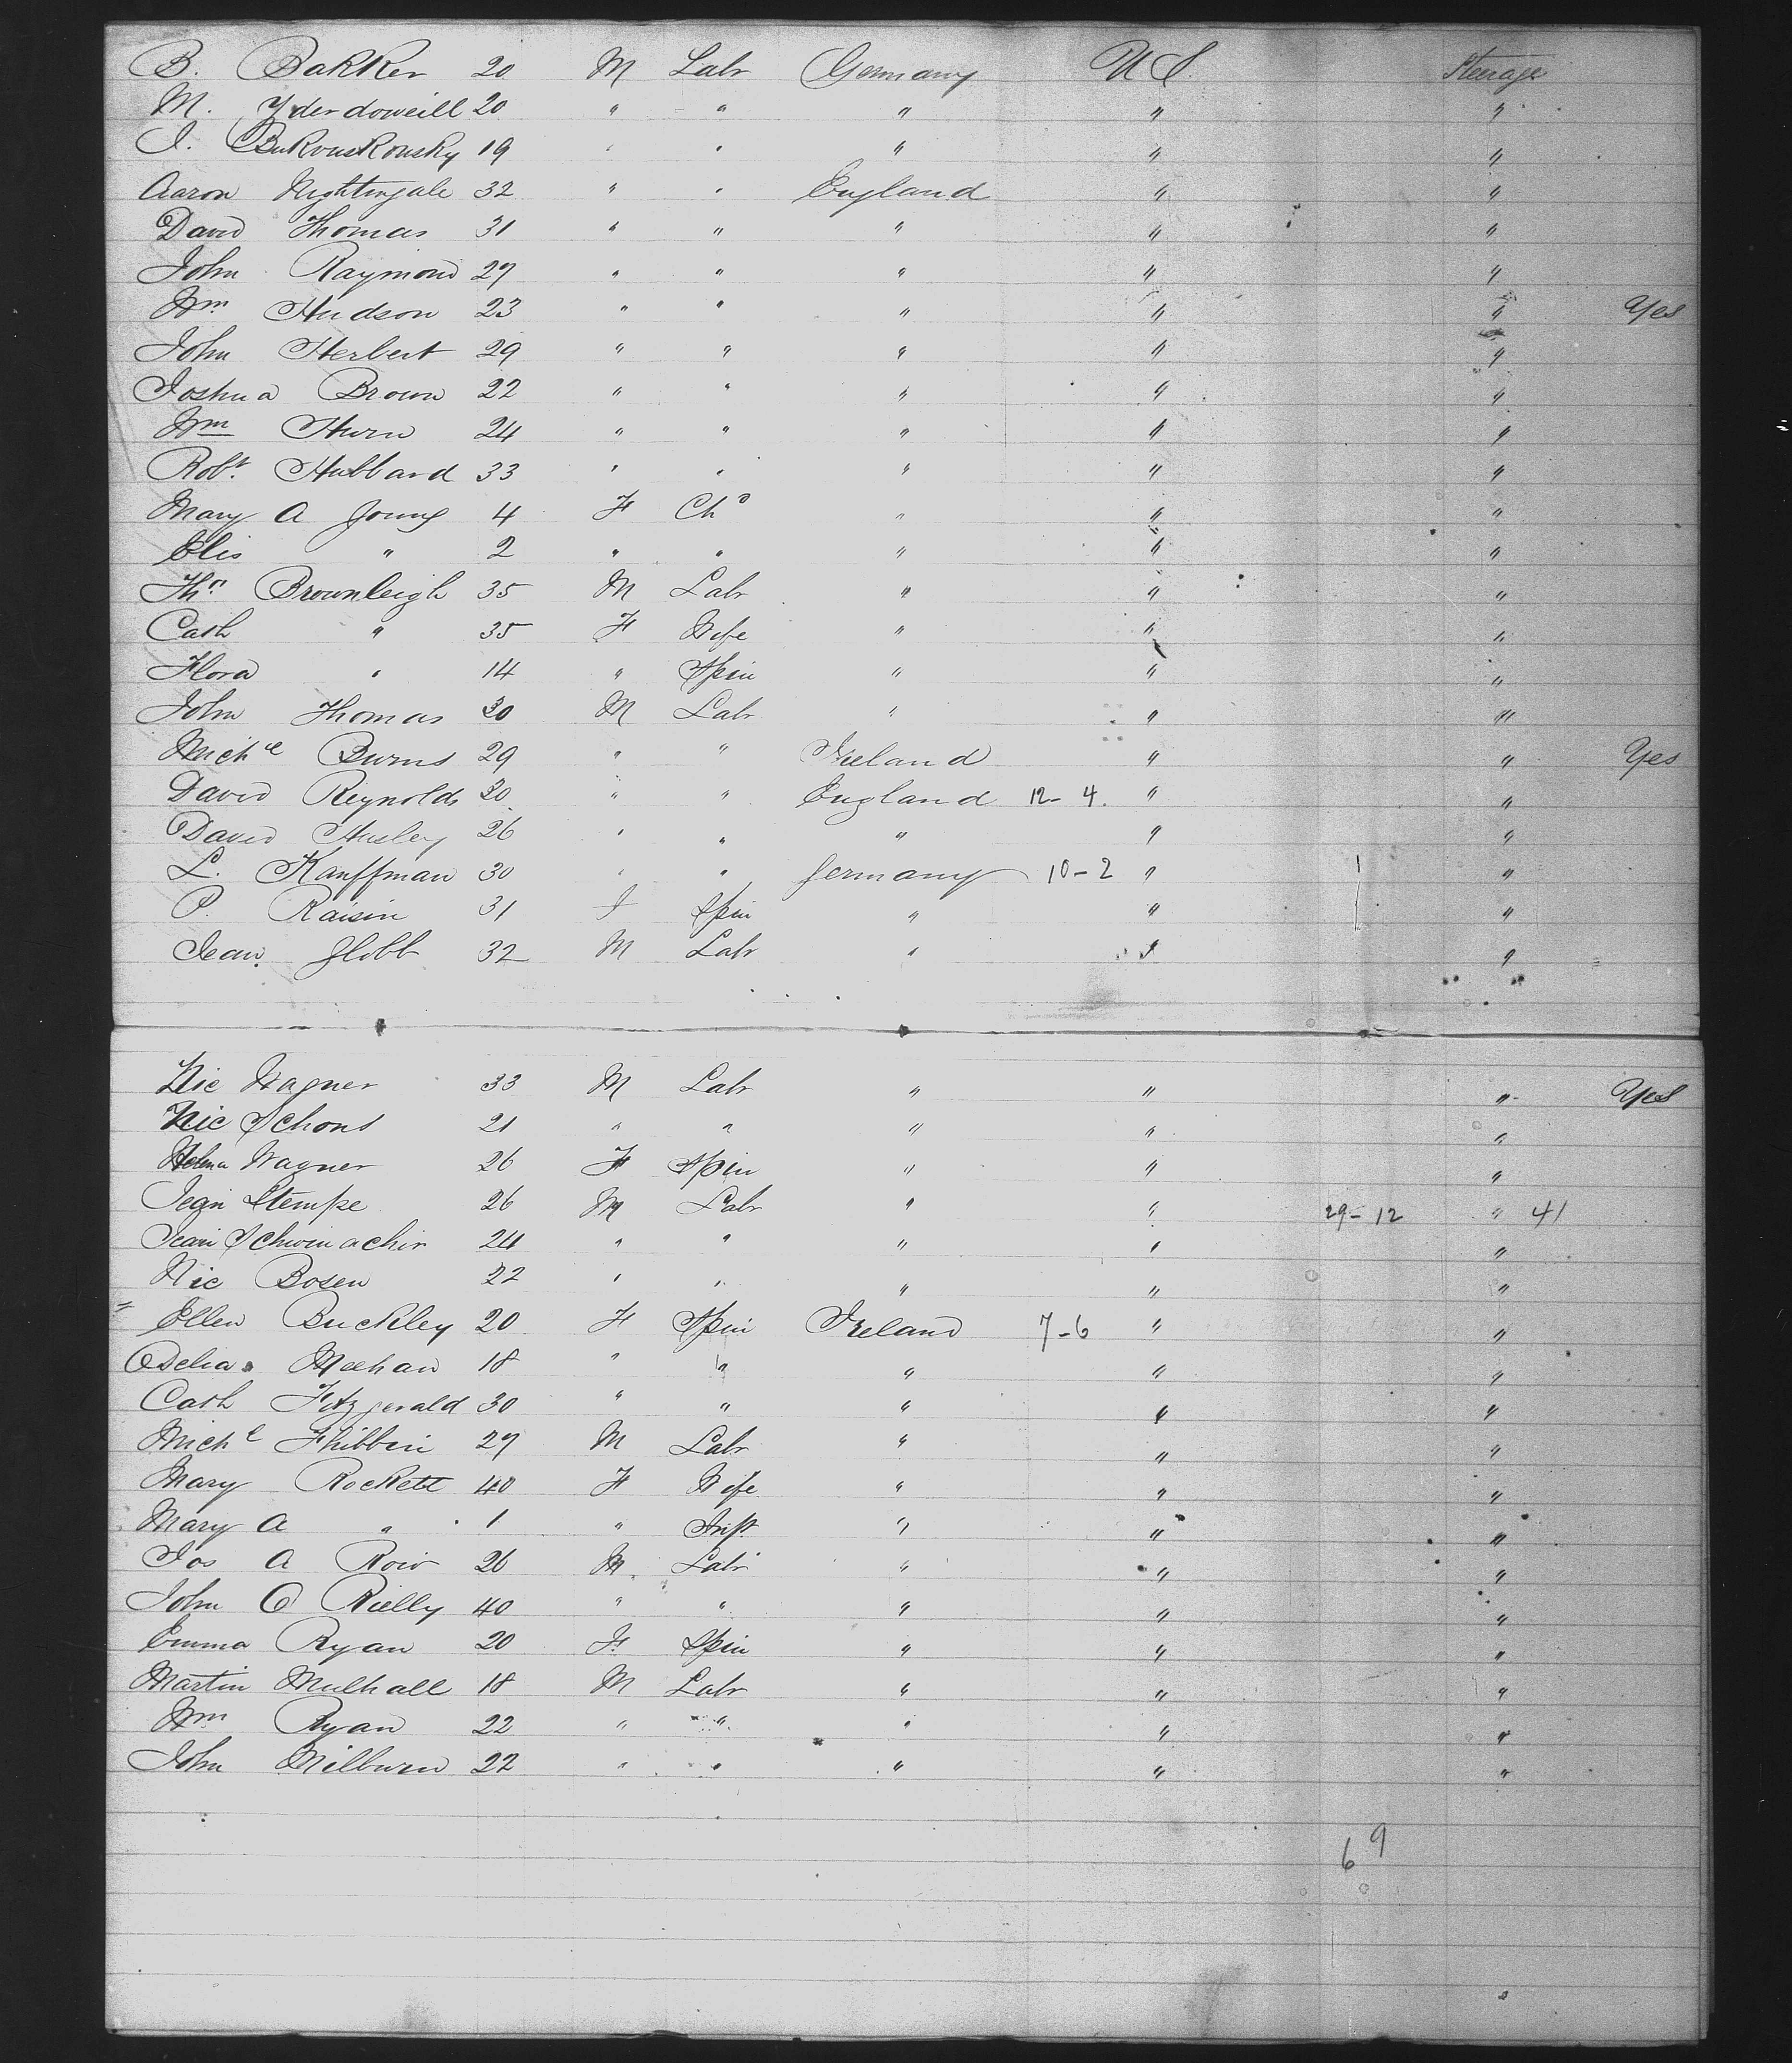 B. Bakker 20 M Labr Germany U S. Steerage
M. Yderdoweill 20 " " " " "
I. 19 " " " " "
Aaron Nightingale 32 " " England " "
David Thomas 31 " " " " "
John Raymond 27 " " " " "
Wm Hudson 23 " " " " " Yes
John Herbert 29 " " " " "
Joshua Brown 22 " " " " "
Wm Hurn 24 " " " " "
Robt. Hubbard 33 " " " " "
Mary A Young 4 F Chd " " "
Elis " 2 " " " " "
Ths Brownleigh 35 M Labr " " "
Cath " 35 F Wife " " "
Flora " 14 " Spin " " "
John Thomas 30 M Labr " " "
Michl Burns 29 " " Ireland " " Yes
David Reynolds 30 " " England 12-4. " "
David 26 " " " " "
L. Kauffman 30 " " Germany 10-2 " "
P. Raisin 31 F Spin " " "
Jean Globb 32 M Labr " " "
Nic Wagner 33 M Labr " " " Yes
Nic Schons 21 " " " " "
Helena Wagner 26 F Spin " " "
Jean Stempe 26 M Labr " " 29-12 " 41
Jean Schwinachir 24 " " " " "
Nic Bosen 22 " " " " "
Ellen Buckley 20 F Spin Ireland 7-6 " "
Delia Meehan 18 " " " " "
Cath Fitzgerald 30 " " " " "
Michl Phibbin 27 M Labr " " "
Mary Rockett 40 F Wife " " "
Mary A " 1 " Inft " " "
Jos A 26 M Labr " " "
John O Rielly 40 " " " " "
Emma Ryan 20 F Spin " " "
Martin Mulhall 18 M Labr " " "
Wm Ryan 22 " " " " "
John Milburn 22 " " " " "
69